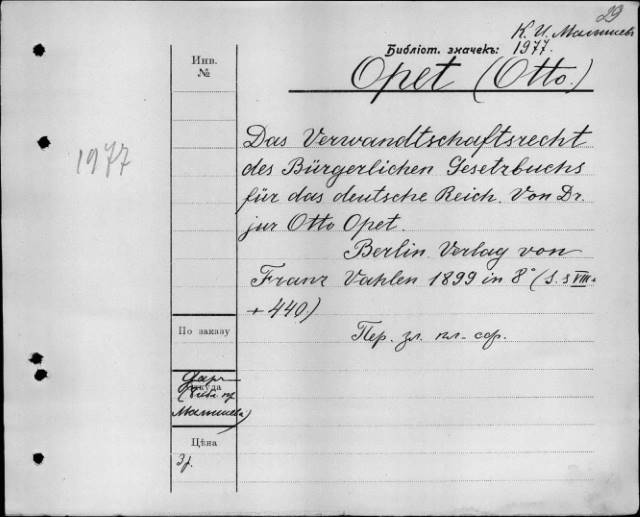 29
К. И. Малышев
Библіот. значекъ: 1977.
Инв.
№
Opet (Otto.)
1977
Das Verwandtschaftsrecht
des Bürgerlichen Gesetzbuchs
für das deutsche Reich. Von Dr.
jur Otto Opet.
Berlin Verlag von
Franz Vahlen 1899 in 8° (S. S VIII
+ 440)
Пер. зл. пл. сор.
По заказу
Даръ
Откуда
Малышева)
Цѣна
3 р.